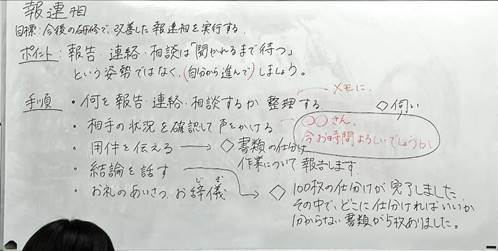 報連相
目標:今後の研修で、改善した報連相を実行する。
ポイント:報告 連絡・相談は「聞かれるまで待つ」
という姿勢ではなく、(自分から進んで)しましょう。
手順 ・何を報告 連絡・相談するか 整理する
メモに
・相手の状況を確認して声をかける
◇伺い
〇〇さん、
今お時間よろしいでしょうか
・用件を伝える → ◇書類の仕分け
作業について 報告します
・結論を話す
・お礼のあいさつ、お辞儀
じ ぎ
◇100枚の仕分けが完了しました
その中で、どこに仕分ければいいか
分からない書類が5枚ありました。